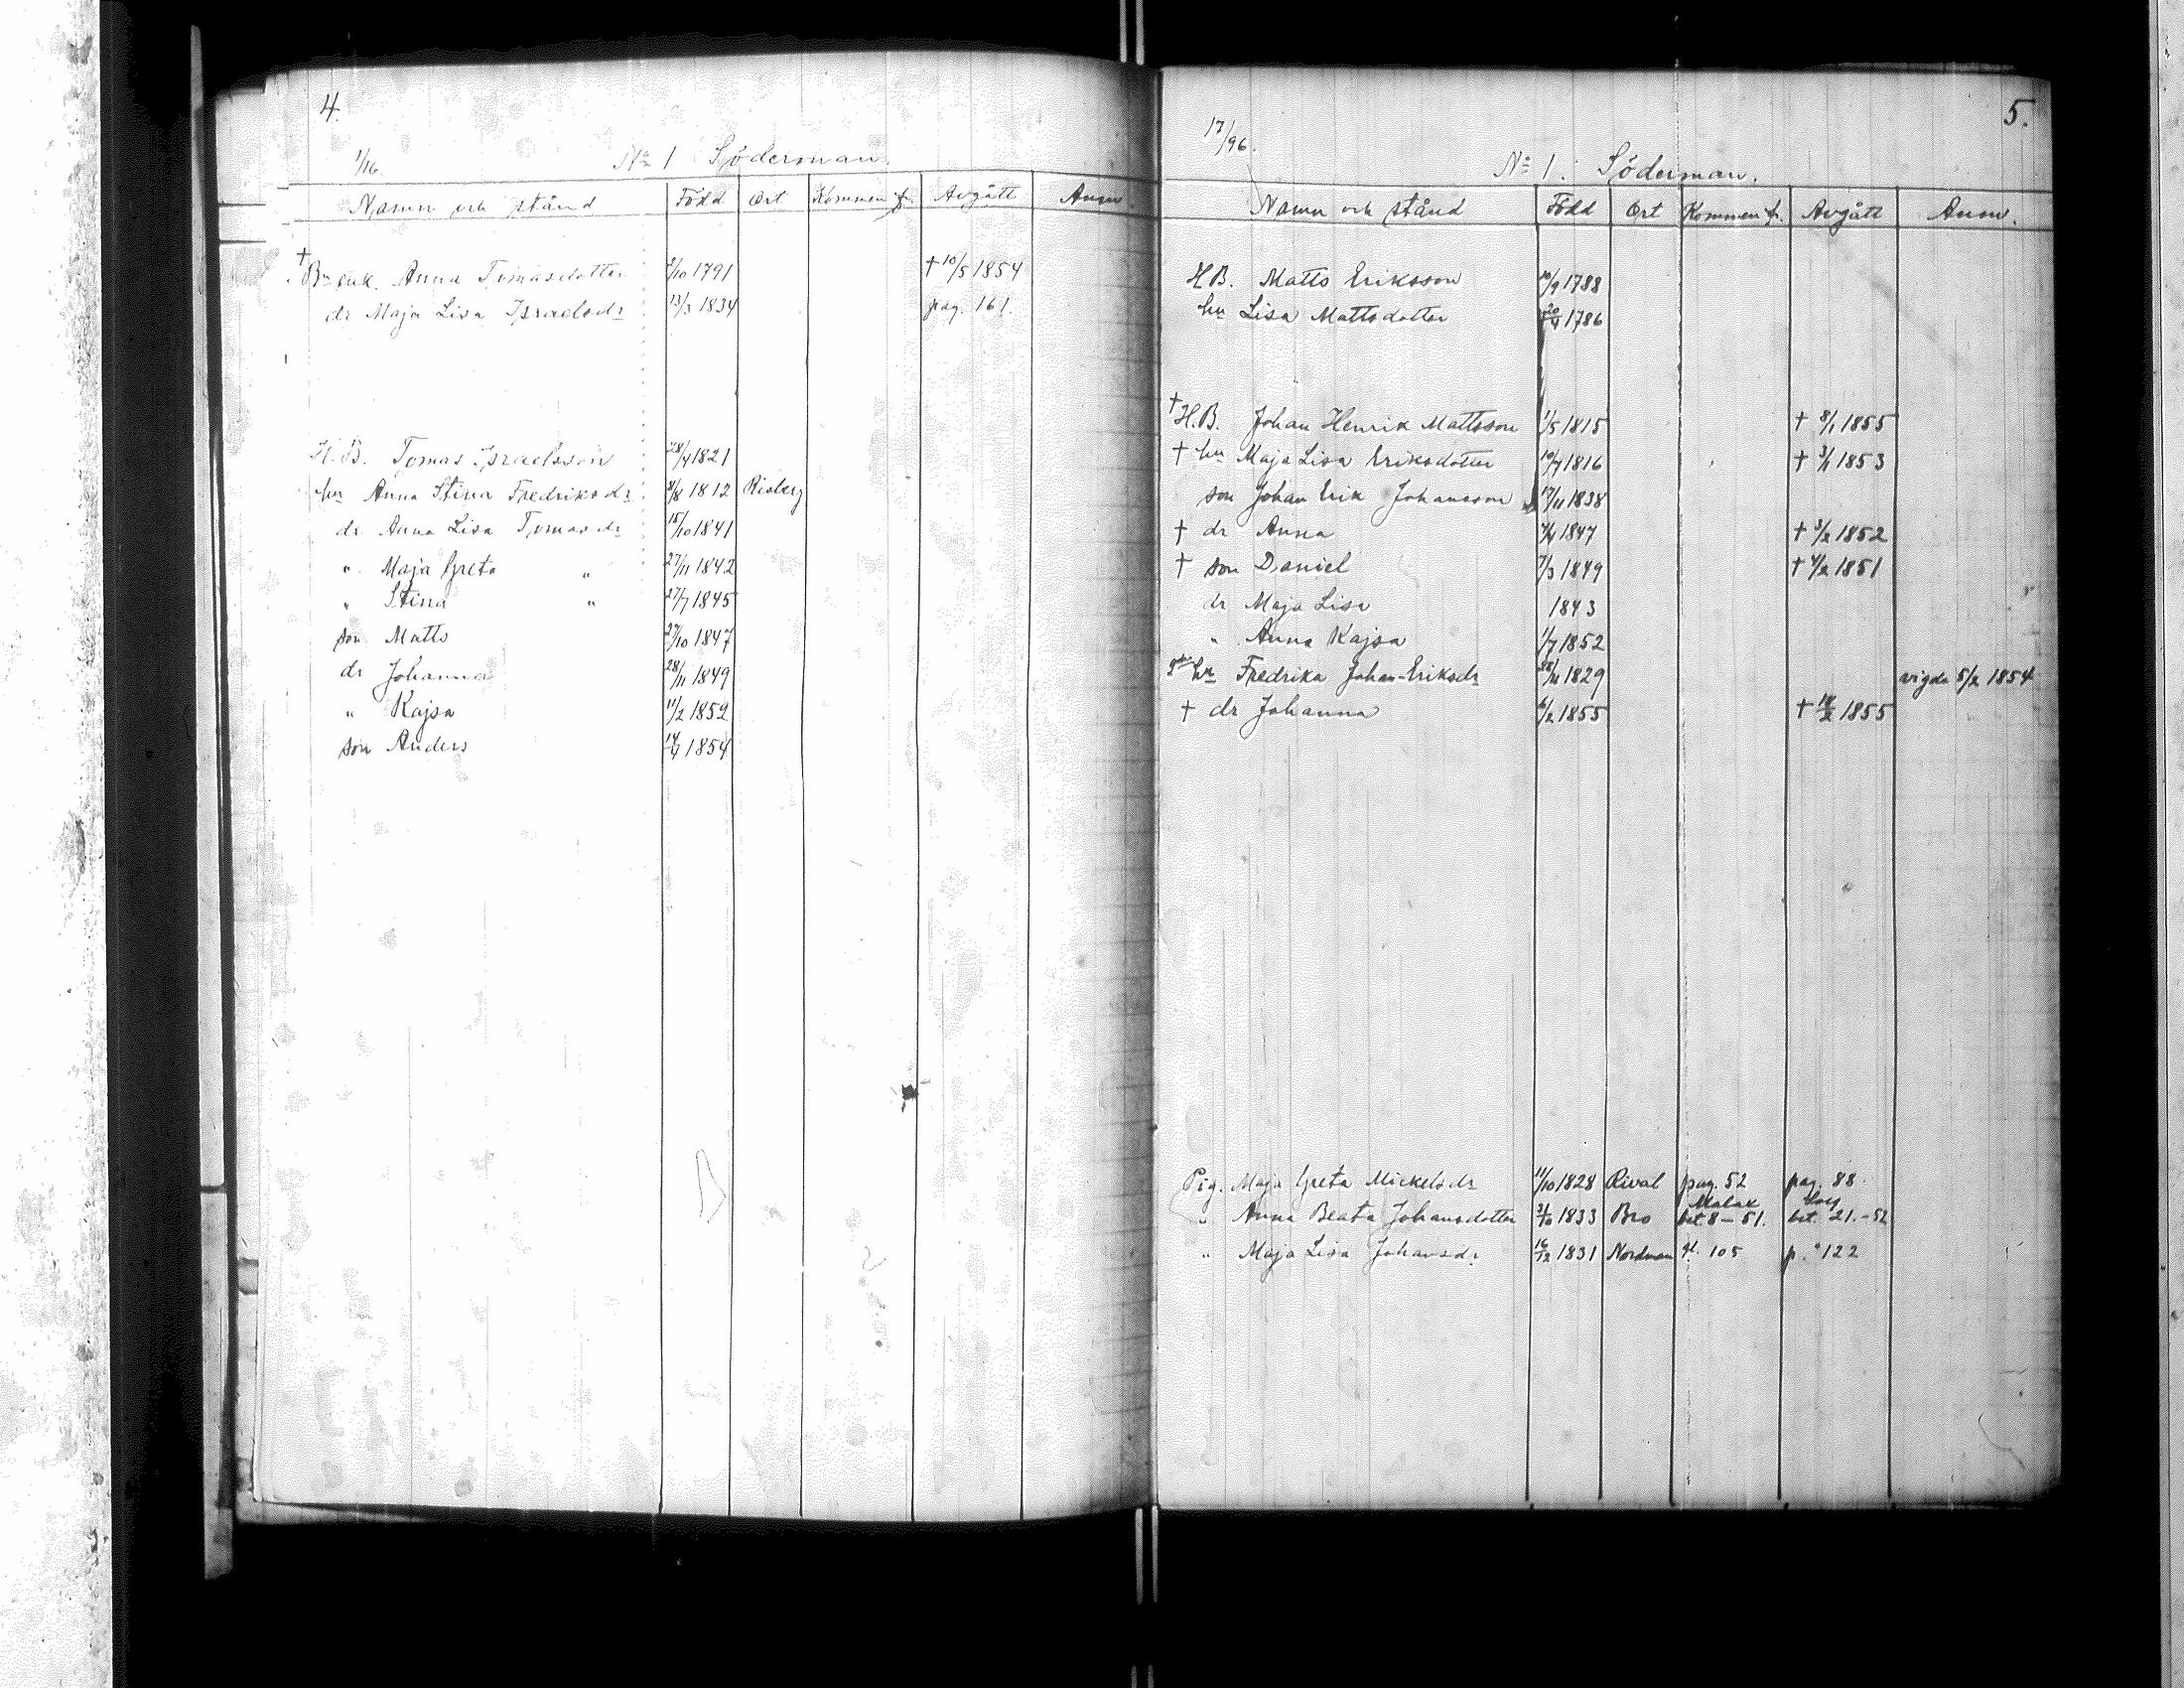 4.
1/16. No 1 Söderman.
Namn och stånd Född Ort Kommen fr. Avgått Anm
† Bn enk. Anna Tomasdotter /10 1791 † 10/5 1854
dr Maja Lisa Israelsdr 13/3 1834 pag. 161.
H.B. Tomas Israelsson 28/4 1821
hu Anna Stina Fredriksdr 8/8 1812 Risberg
dr Anna Lisa Tomasdr 15/10 1841
" Maja Greta " 27/11 1842
" Stina " 27/7 1845
son Matts 27/10 1847
dr Johanna 28/11 1849
" Kajsa 11/2 1852
son Anders 14/4 1854
5.
17/96. No 1. Söderman.
Namn och stånd Född Ort Kommen fr. Avgått Anm.
H.B. Matts Eriksson 10/9 1788
hu Lisa Mattsdotter 1786
† H.B. Johan Henrik Mattsson 1/5 1815 † 8/1 1855
† hu Maja Lisa Eriksdotter 10/7 1816 † 3/1 1853
son Johan Erik Johansson 17/11 1838
† dr Anna 1847 † 3/2 1852
† son Daniel 7/3 1849 † 4/2 1851
dr Maja Lisa 1843
" Anna Kajsa 1/7 1852
hu Fredrika Johan-Eriksdr 1829 vigda 5/2 1854
† dr Johanna 6/2 1855 † 18/2 1855
Pig. Maja Greta Mickelsdr 11/10 1828 Rival pag. 52 pag. 88.
Malax
" Anna Beata Johansdotter 31/10 1833 Bro bet. 8 - 51. bet. 21. - 52
" Maja Lisa Johansdr 16/12 1831 Nordman 105 p. 122